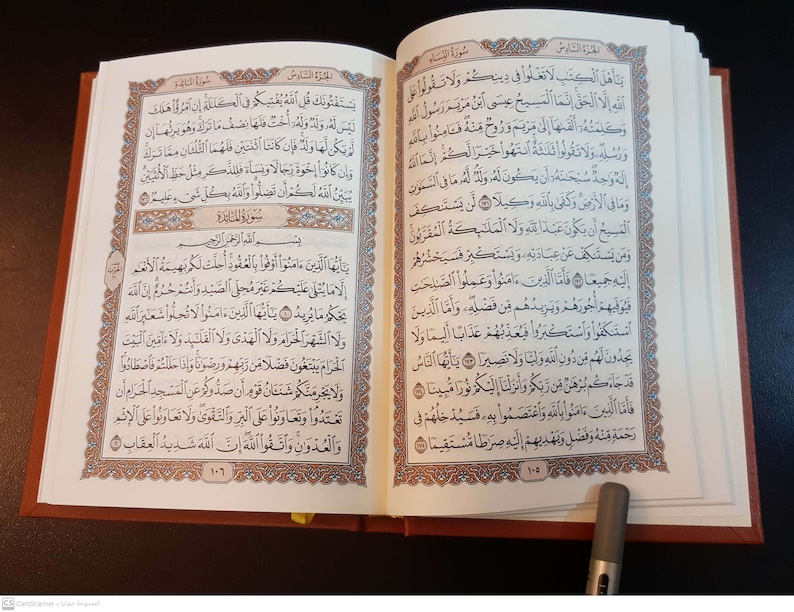 الجزء السادس
سورة النساء
يَٰٓأَهۡلَ ٱلۡكِتَٰبِ لَا تَغۡلُواْ فِي دِينِكُمۡ وَلَا تَقُولُواْ عَلَى
ٱللَّهِ إِلَّا ٱلۡحَقَّۚ إِنَّمَا ٱلۡمَسِيحُ عِيسَى ٱبۡنُ مَرۡيَمَ رَسُولُ ٱللَّهِ
وَكَلِمَتُهُۥٓ أَلۡقَىٰهَآ إِلَىٰ مَرۡيَمَ وَرُوحٞ مِّنۡهُۖ فَـَٔامِنُواْ بِٱللَّهِ
وَرُسُلِهِۦۖ وَلَا تَقُولُواْ ثَلَٰثَةٌۚ ٱنتَهُواْ خَيۡرٗا لَّكُمۡۚ إِنَّمَا ٱللَّهُ
إِلَٰهٞ وَٰحِدٞۖ سُبۡحَٰنَهُۥٓ أَن يَكُونَ لَهُۥ وَلَدٞۘ لَّهُۥ مَا فِي ٱلسَّمَٰوَٰتِ
وَمَا فِي ٱلۡأَرۡضِۗ وَكَفَىٰ بِٱللَّهِ وَكِيلٗا ١٧١ لَّن يَسۡتَنكِفَ
ٱلۡمَسِيحُ أَن يَكُونَ عَبۡدٗا لِّلَّهِ وَلَا ٱلۡمَلَٰٓئِكَةُ ٱلۡمُقَرَّبُونَۚ
وَمَن يَسۡتَنكِفۡ عَنۡ عِبَادَتِهِۦ وَيَسۡتَكۡبِرۡ فَسَيَحۡشُرُهُمۡ
إِلَيۡهِ جَمِيعٗا ١٧٢ فَأَمَّا ٱلَّذِينَ ءَامَنُواْ وَعَمِلُواْ ٱلصَّٰلِحَٰتِ
فَيُوَفِّيهِمۡ أُجُورَهُمۡ وَيَزِيدُهُم مِّن فَضۡلِهِۦۖ وَأَمَّا ٱلَّذِينَ
ٱسۡتَنكَفُواْ وَٱسۡتَكۡبَرُواْ فَيُعَذِّبُهُمۡ عَذَابًا أَلِيمٗا وَلَا
يَجِدُونَ لَهُم مِّن دُونِ ٱللَّهِ وَلِيّٗا وَلَا نَصِيرٗا ١٧٣ يَٰٓأَيُّهَا ٱلنَّاسُ
قَدۡ جَآءَكُم بُرۡهَٰنٞ مِّن رَّبِّكُمۡ وَأَنزَلۡنَآ إِلَيۡكُمۡ نُورٗا مُّبِينٗا ١٧٤
فَأَمَّا ٱلَّذِينَ ءَامَنُواْ بِٱللَّهِ وَٱعۡتَصَمُواْ بِهِۦ فَسَيُدۡخِلُهُمۡ فِي
رَحۡمَةٖ مِّنۡهُ وَفَضۡلٖ وَيَهۡدِيهِمۡ إِلَيۡهِ صِرَٰطٗا مُّسۡتَقِيمٗا ١٧٥
١٠٥
الجزء السادس
سورة المائدة
يَسۡتَفۡتُونَكَ قُلِ ٱللَّهُ يُفۡتِيكُمۡ فِي ٱلۡكَلَٰلَةِۚ إِنِ ٱمۡرُؤٌاْ هَلَكَ
لَيۡسَ لَهُۥ وَلَدٞ وَلَهُۥٓ أُخۡتٞ فَلَهَا نِصۡفُ مَا تَرَكَۚ وَهُوَ يَرِثُهَآ إِن
لَّمۡ يَكُن لَّهَا وَلَدٞۚ فَإِن كَانَتَا ٱثۡنَتَيۡنِ فَلَهُمَا ٱلثُّلُثَانِ مِمَّا تَرَكَۚ
وَإِن كَانُوٓاْ إِخۡوَةٗ رِّجَالٗا وَنِسَآءٗ فَلِلذَّكَرِ مِثۡلُ حَظِّ ٱلۡأُنثَيَيۡنِۗ
يُبَيِّنُ ٱللَّهُ لَكُمۡ أَن تَضِلُّواْۗ وَٱللَّهُ بِكُلِّ شَيۡءٍ عَلِيمُۢ ١٧٦
سورة المائدة
بِسۡمِ ٱللَّهِ ٱلرَّحۡمَٰنِ ٱلرَّحِيمِ
يَٰٓأَيُّهَا ٱلَّذِينَ ءَامَنُوٓاْ أَوۡفُواْ بِٱلۡعُقُودِۚ أُحِلَّتۡ لَكُم بَهِيمَةُ ٱلۡأَنۡعَٰمِ
إِلَّا مَا يُتۡلَىٰ عَلَيۡكُمۡ غَيۡرَ مُحِلِّي ٱلصَّيۡدِ وَأَنتُمۡ حُرُمٌۗ إِنَّ ٱللَّهَ
يَحۡكُمُ مَا يُرِيدُ ١ يَٰٓأَيُّهَا ٱلَّذِينَ ءَامَنُواْ لَا تُحِلُّواْ شَعَٰٓئِرَ ٱللَّهِ
وَلَا ٱلشَّهۡرَ ٱلۡحَرَامَ وَلَا ٱلۡهَدۡيَ وَلَا ٱلۡقَلَٰٓئِدَ وَلَآ ءَآمِّينَ ٱلۡبَيۡتَ
ٱلۡحَرَامَ يَبۡتَغُونَ فَضۡلٗا مِّن رَّبِّهِمۡ وَرِضۡوَٰنٗاۚ وَإِذَا حَلَلۡتُمۡ فَٱصۡطَادُواْۚ
وَلَا يَجۡرِمَنَّكُمۡ شَنَـَٔانُ قَوۡمٍ أَن صَدُّوكُمۡ عَنِ ٱلۡمَسۡجِدِ ٱلۡحَرَامِ أَن
تَعۡتَدُواْۘ وَتَعَاوَنُواْ عَلَى ٱلۡبِرِّ وَٱلتَّقۡوَىٰۖ وَلَا تَعَاوَنُواْ عَلَى ٱلۡإِثۡمِ
وَٱلۡعُدۡوَٰنِۚ وَٱتَّقُواْ ٱللَّهَۖ إِنَّ ٱللَّهَ شَدِيدُ ٱلۡعِقَابِ ٢
١٠٦
CS CamScanner الممسوحة ضوئيا بـ